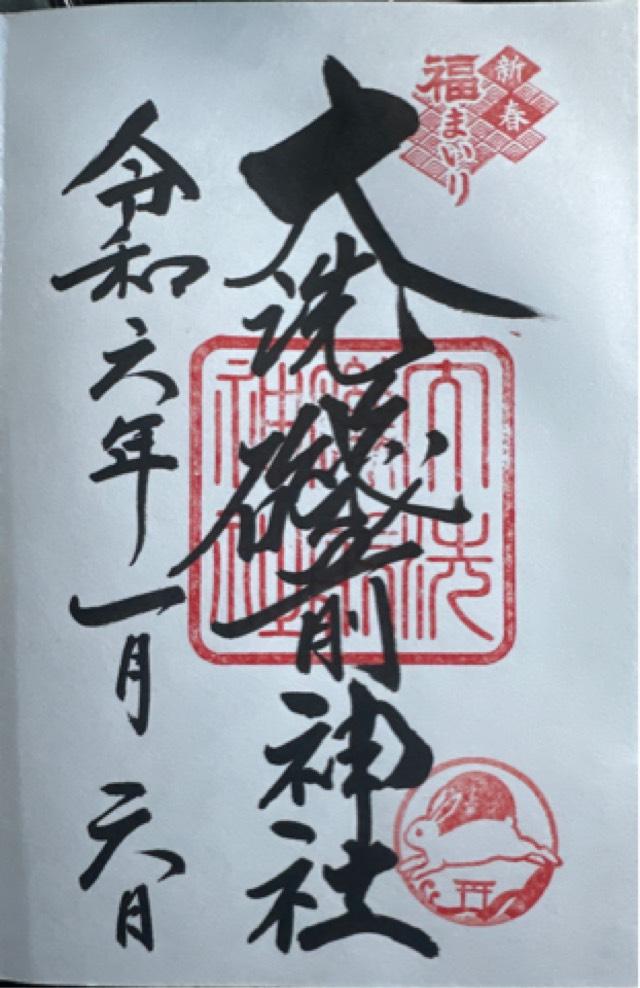 新春
福まいり
大洗磯前神社
大洗
磯前
神社
令和六年一月六日